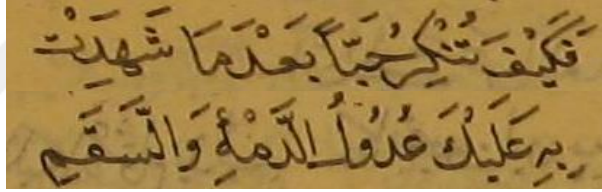 فَكَيْفَ تُنْكِرُ حُبًّا بَعْدَ مَا شَهِدَتْ
بِهِ عَلَيْكَ عُدُولُ الدَّمْعِ وَالسَّقَمِ